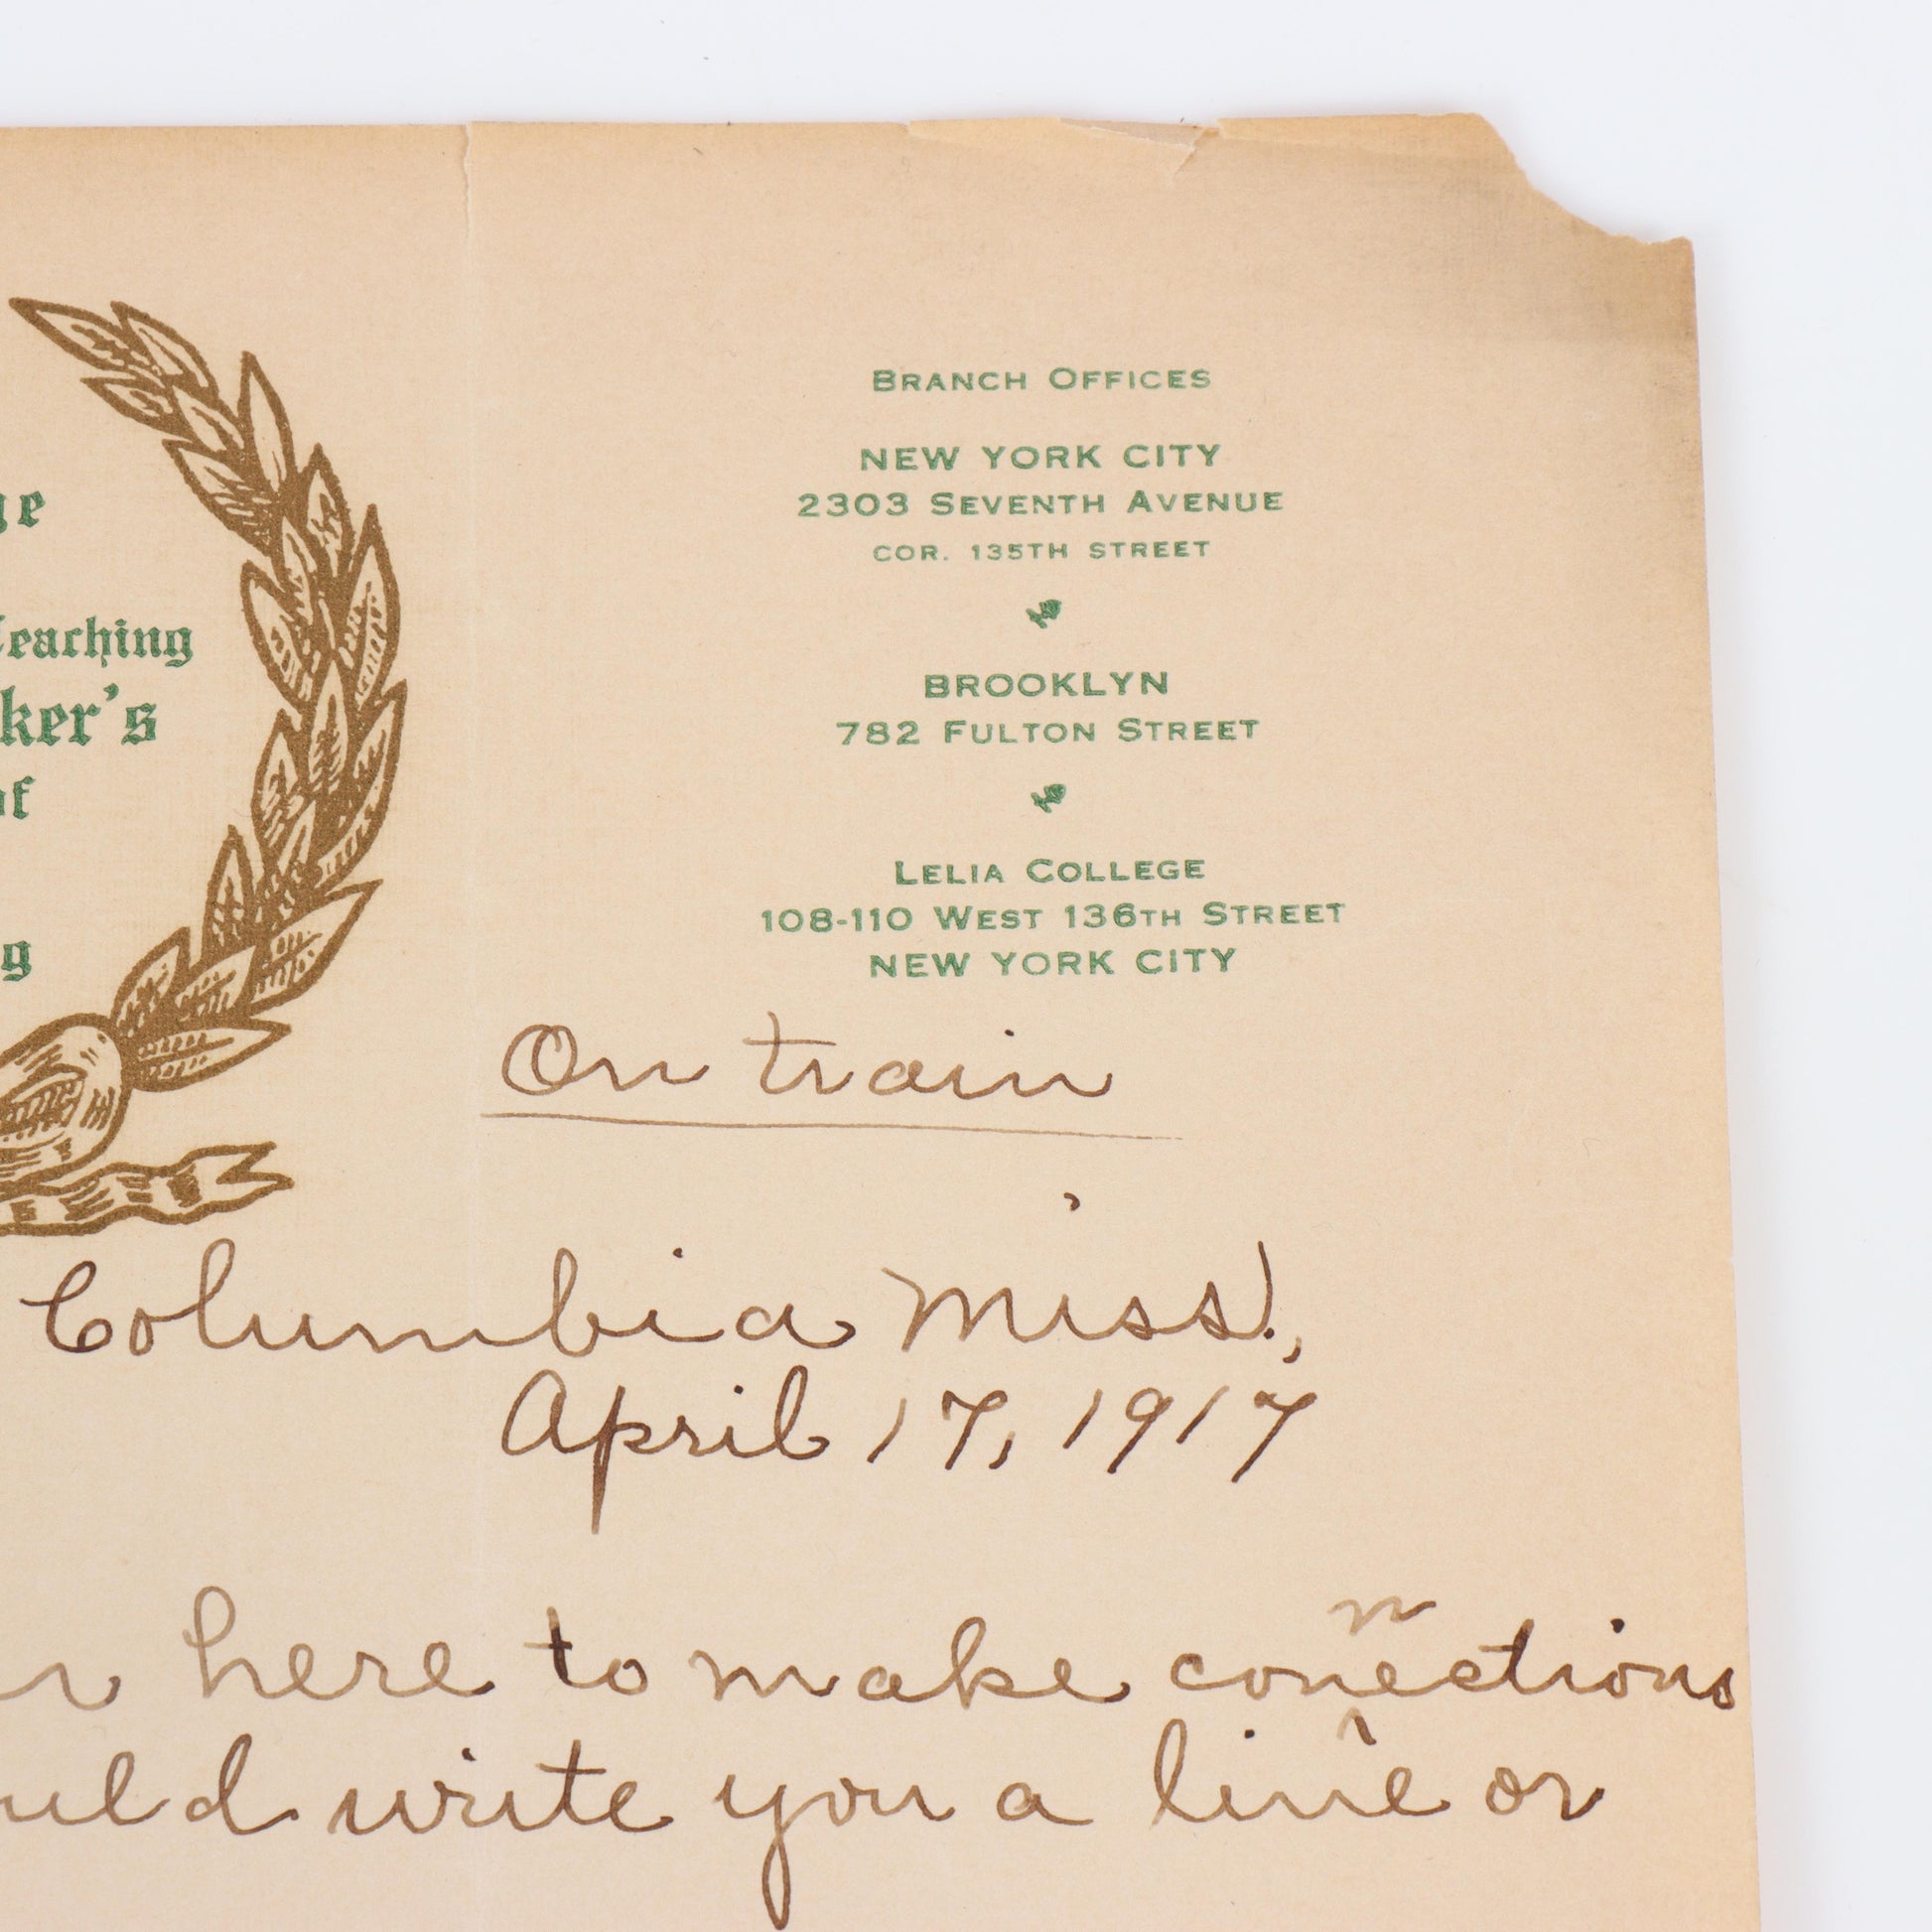 ge
Teaching
ker's
of
g
BRANCH OFFICES
NEW YORK CITY
2303 SEVENTH AVENUE
COR. 135TH STREET
BROOKLYN
782 FULTON STREET
LELIA COLLEGE
108-110 WEST 136TH STREET
NEW YORK CITY
On train
Columbia Miss.,
April 17, 1917
r here to make connections
uld write you a line or